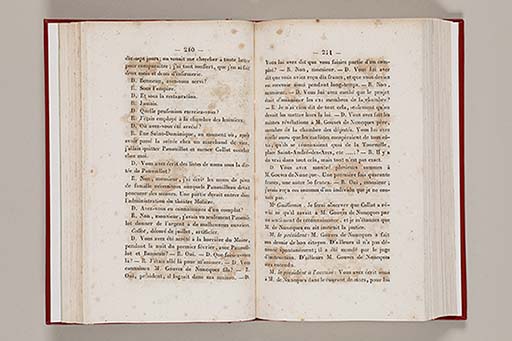 — 240 —
dix-sept jours; on venait me chercher à toute heure
pour comparaître; j'ai tout souffert, que j'en ai fait
deux mois et demi d'infirmerie.
D. Bonneur, avez-vous servi?
R. Sous l'empire.
D. Et sous la restauration.
R. Jamais.
D. Quelle profession exerciez-vous?
R. J'étais employé à la chambre des huissiers.
D. Où avez-vous été arrêté?
R. Rue Saint-Dominique, au moment où, après
avoir passé la soirée chez un marchand de vin,
j'allais quitter Panouillot et mener Collet coucher
chez moi.
D. Vous avez écrit des listes de noms sous la dic-
tée de Panouillot?
R. Non, monsieur, j'ai écrit les noms de pères
de famille auxquels Panouillot devait
procurer des secours. Une partie devait entrer dans
l'administration du théâtre Molière.
D. Avez-vous eu connaissance d'un complot?
R. Non, monsieur, j'avais vu seulement Panouil-
lot donner de l'argent à de malheureux ouvriers.
Collet, décoré de juillet, ex-officier.
D. Vous avez été arrêté à la barrière du Maine,
pendant la nuit du premier février, avec Panouil-
lot et Bonneur? — R. Oui. — D. Que faisiez-vous
là? — R. J'étais allé là pour m'amuser. — D. Vous
connaissez M. Gouves de Nuncques fils? — R.
Oui, président, il logeait dans ma maison. — D.
— 241 —
Vous lui avez dit que vous faisiez partie d'un com-
plot? — R. Non, monsieur. — D. Vous lui avez
dit que vous aviez reçu dix francs, et que vous deviez
en recevoir ainsi pendant long-temps. — R. Non,
monsieur. — D. Vous lui avez confié que le projet
était d'assassiner les membres de la chambre?
— R. Je n'ai rien dit de tout cela, seulement qu'on
devait les mettre hors la loi. — D. Vous avez fait les
mêmes révélations à M. Gouves de Nuncques père,
membre de la chambre des députés. Vous lui avez
parlé aussi que les casernes manqueraient de tous cô-
tés, qu'ils se trouveraient quai de la Tournelle,
place Saint-André-des-Arcs, etc ....? — R. Il y a
du vrai dans tout cela, mais tout n'en est pas exact.
D. Vous avez montré plusieurs sommes à
M. Gouves de Nuncques. Une première fois quarante
francs, une autre 80 francs. — R. Oui, monsieur;
j'avais reçu ces sommes d'un individu que je ne con-
nais pas.
Me Guillemin. Je ferai observer que Collet a ré-
vélé ce qu'il savait à M. Gouves de Nuncques par
un sentiment de reconnaissance, et je m'étonnes que
M. de Nuncques en ait instruit la justice.
M. le président: M. Gouves de Nuncques a fait
un devoir de bon citoyen. D'ailleurs il n'a pu dé-
noncé spontanément; il a été mandé par le juge
d'instruction. D'ailleurs M. Gouves de Nuncques
sera entendu.
M. le président à l'accusé: Vous avez écrit aussi
à M. de Nuncques dans le courant de mars, pour lui